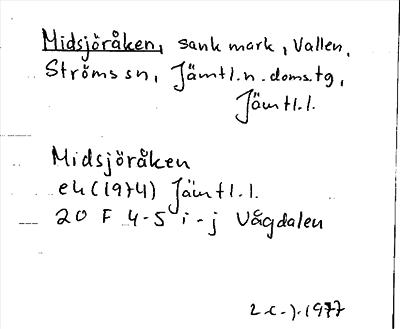 Midsjöråken, sank mark, Vallen,
Ströms sn, Jämtl.n.doms.tg,
Jämtl.l.
Midsjöråken
ek (1974) Jämtl.l.
20 F 4-5 i-j Vågdalen
1977